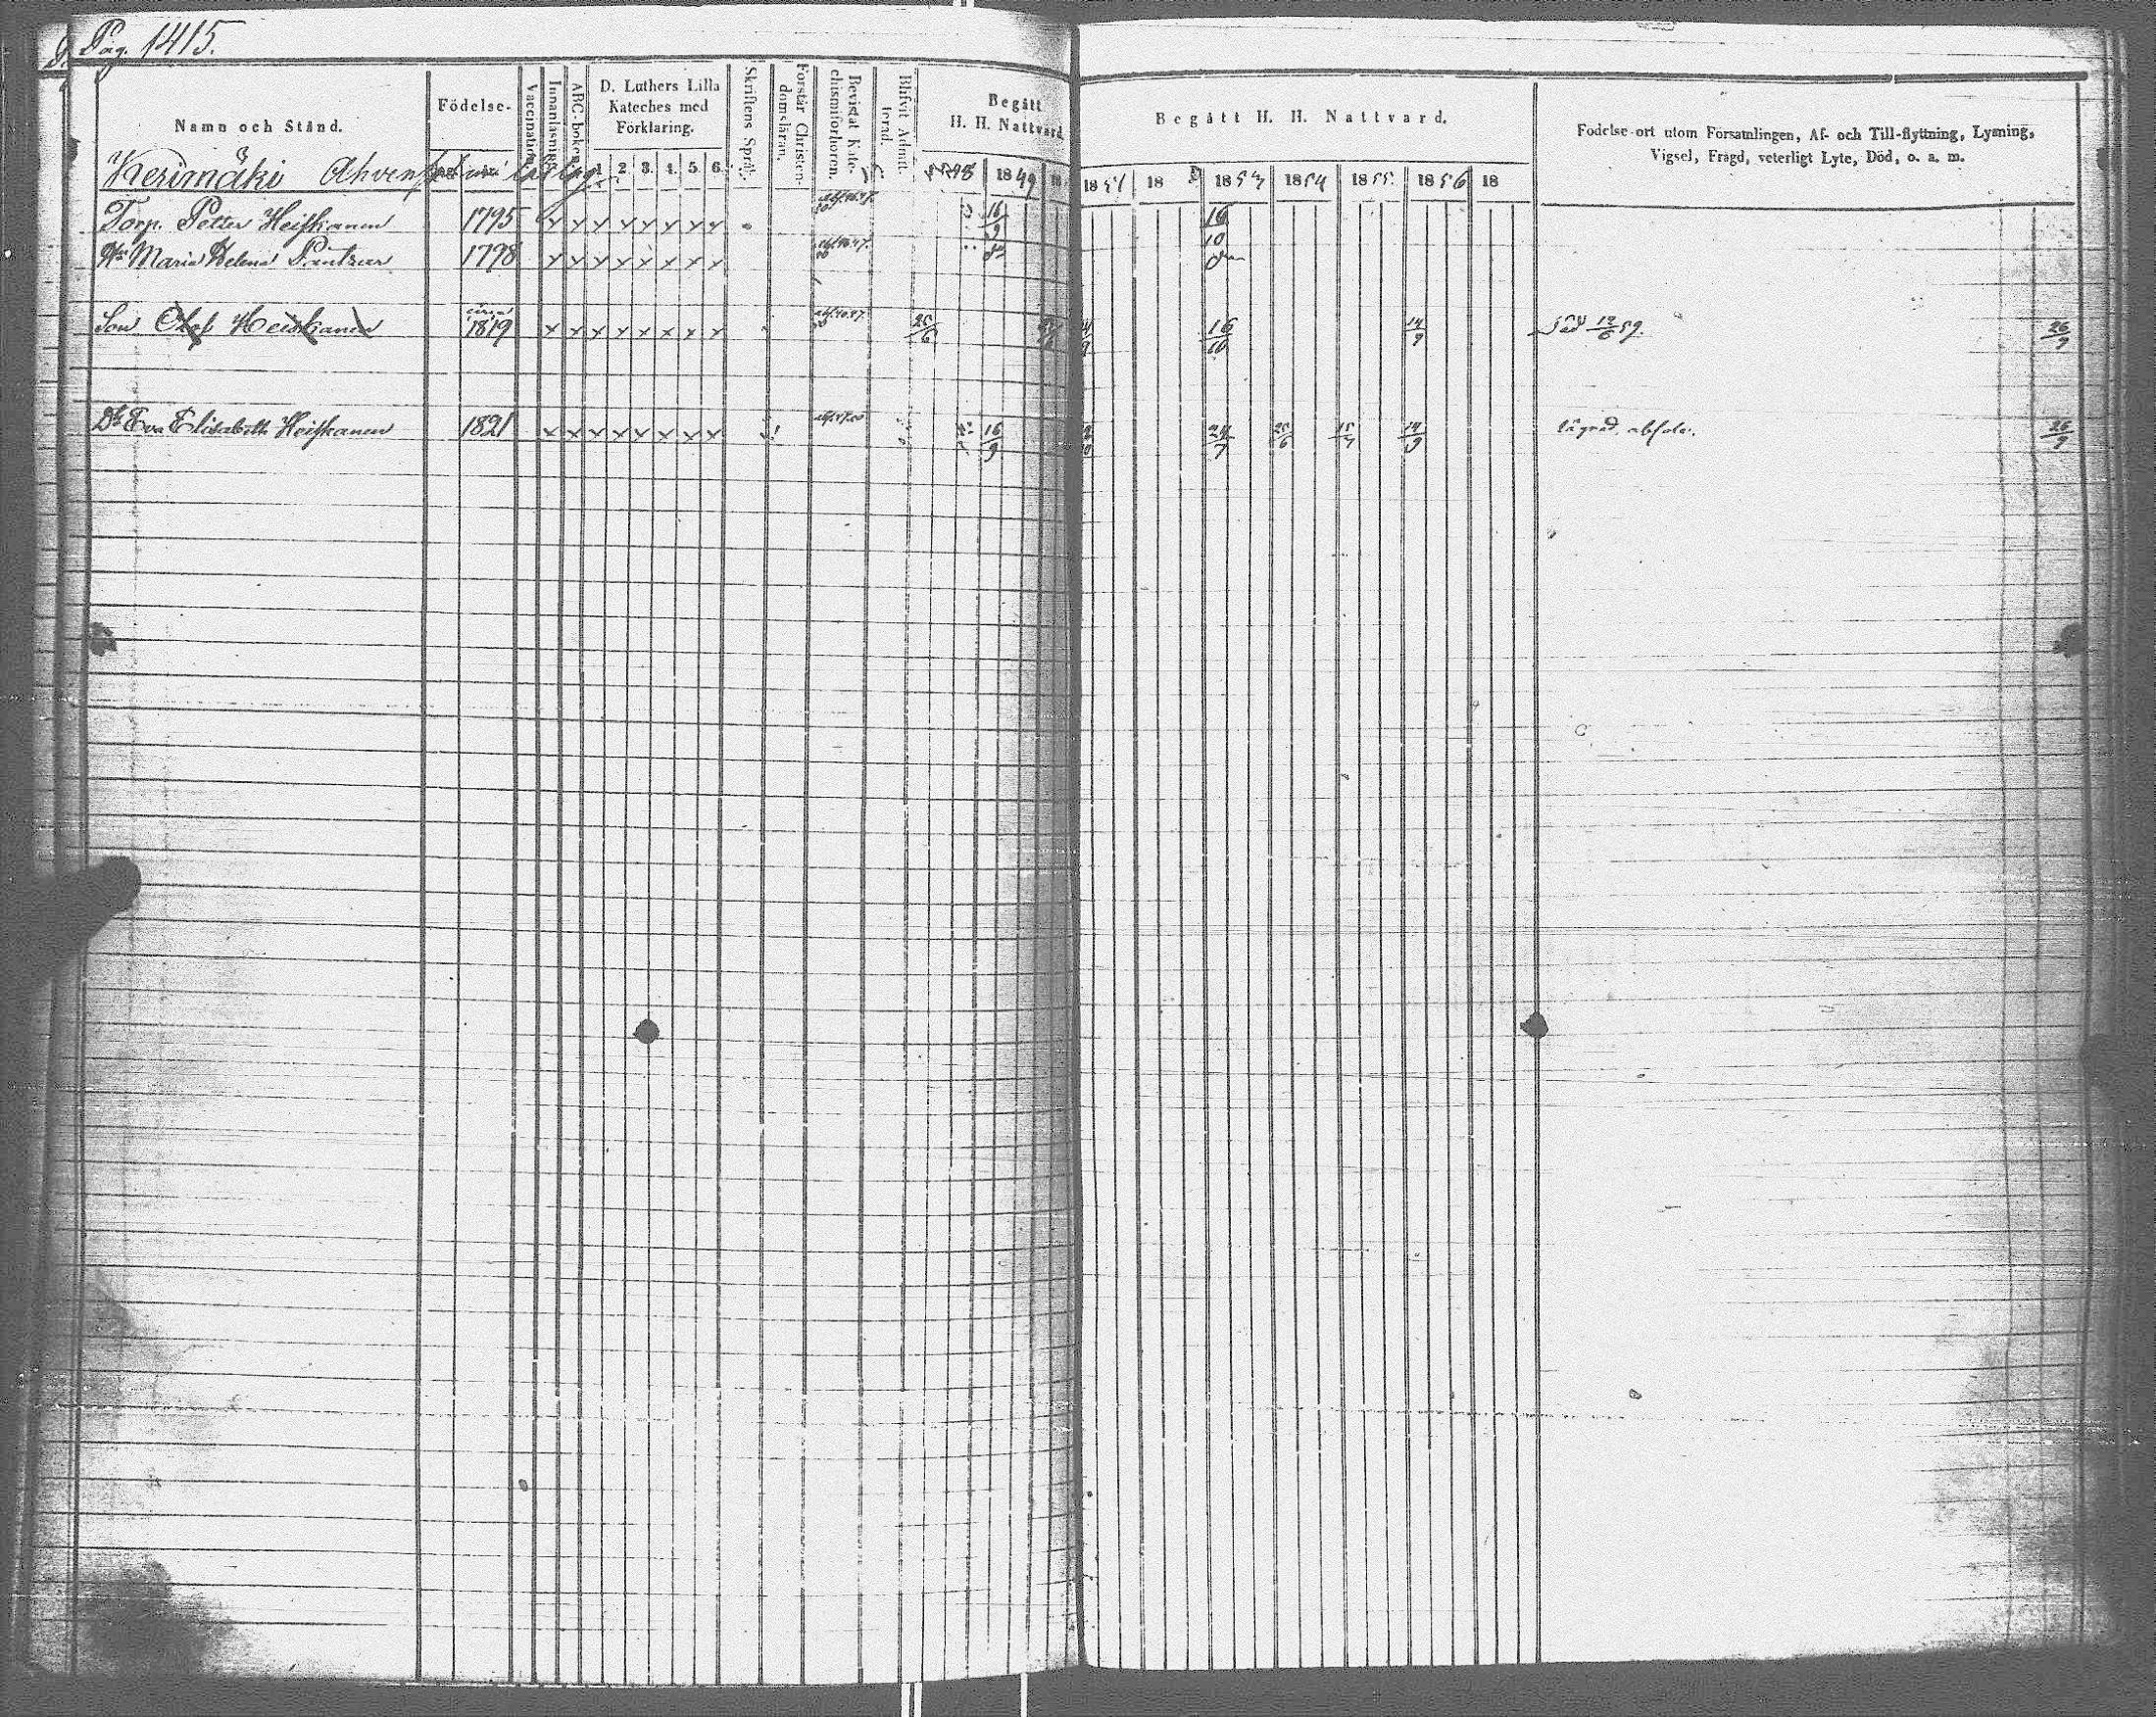 Pag. 1415.
Namn och Stånd.
Födelse-
Vaccination.
Innanläsning.
ABC-boken.
D. Luthers Lilla
Kateches med
Förklaring.
1. 2. 3. 4. 5. 6.
Skriftens Språk.
Förstår Christen-
domsläran.
Bevistat Kate-
chismiförhören.
Blifvit Admit-
terad.
Begått
H. H. Nattvard
1849
Begått H. H. Nattvard.
1851 18 1853 1854 1855. 1856 18
Födelse-ort utom Församlingen, Af- och Till-flyttning, Lysning,
Vigsel, Frägd, veterligt Lyte, Död, o. a. m.
Kerimäki
Torp. Petter Heiskanen 1795 x x x x x x x x 16/9 16/10
Hu Maria Helena Pantzar 1798 x x x x x x x x
Son Olof Heiskanen 1819 x x x x x x x x 25/6 16/10 14/9 26/9
Dr Eva Elisabeth Heiskanen 1821 x x x x x x x x 16/9 24/7 25/6 15/7 14/9 lägrad. absolv. 26/9